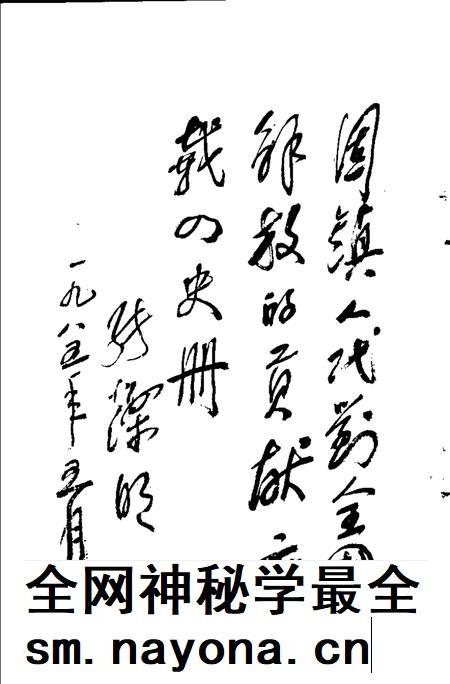 固鎮人民對全国
解放的貢献
載 史册
张 明
一九八五年五月
全网神秘学最全
sm.nayona.cn